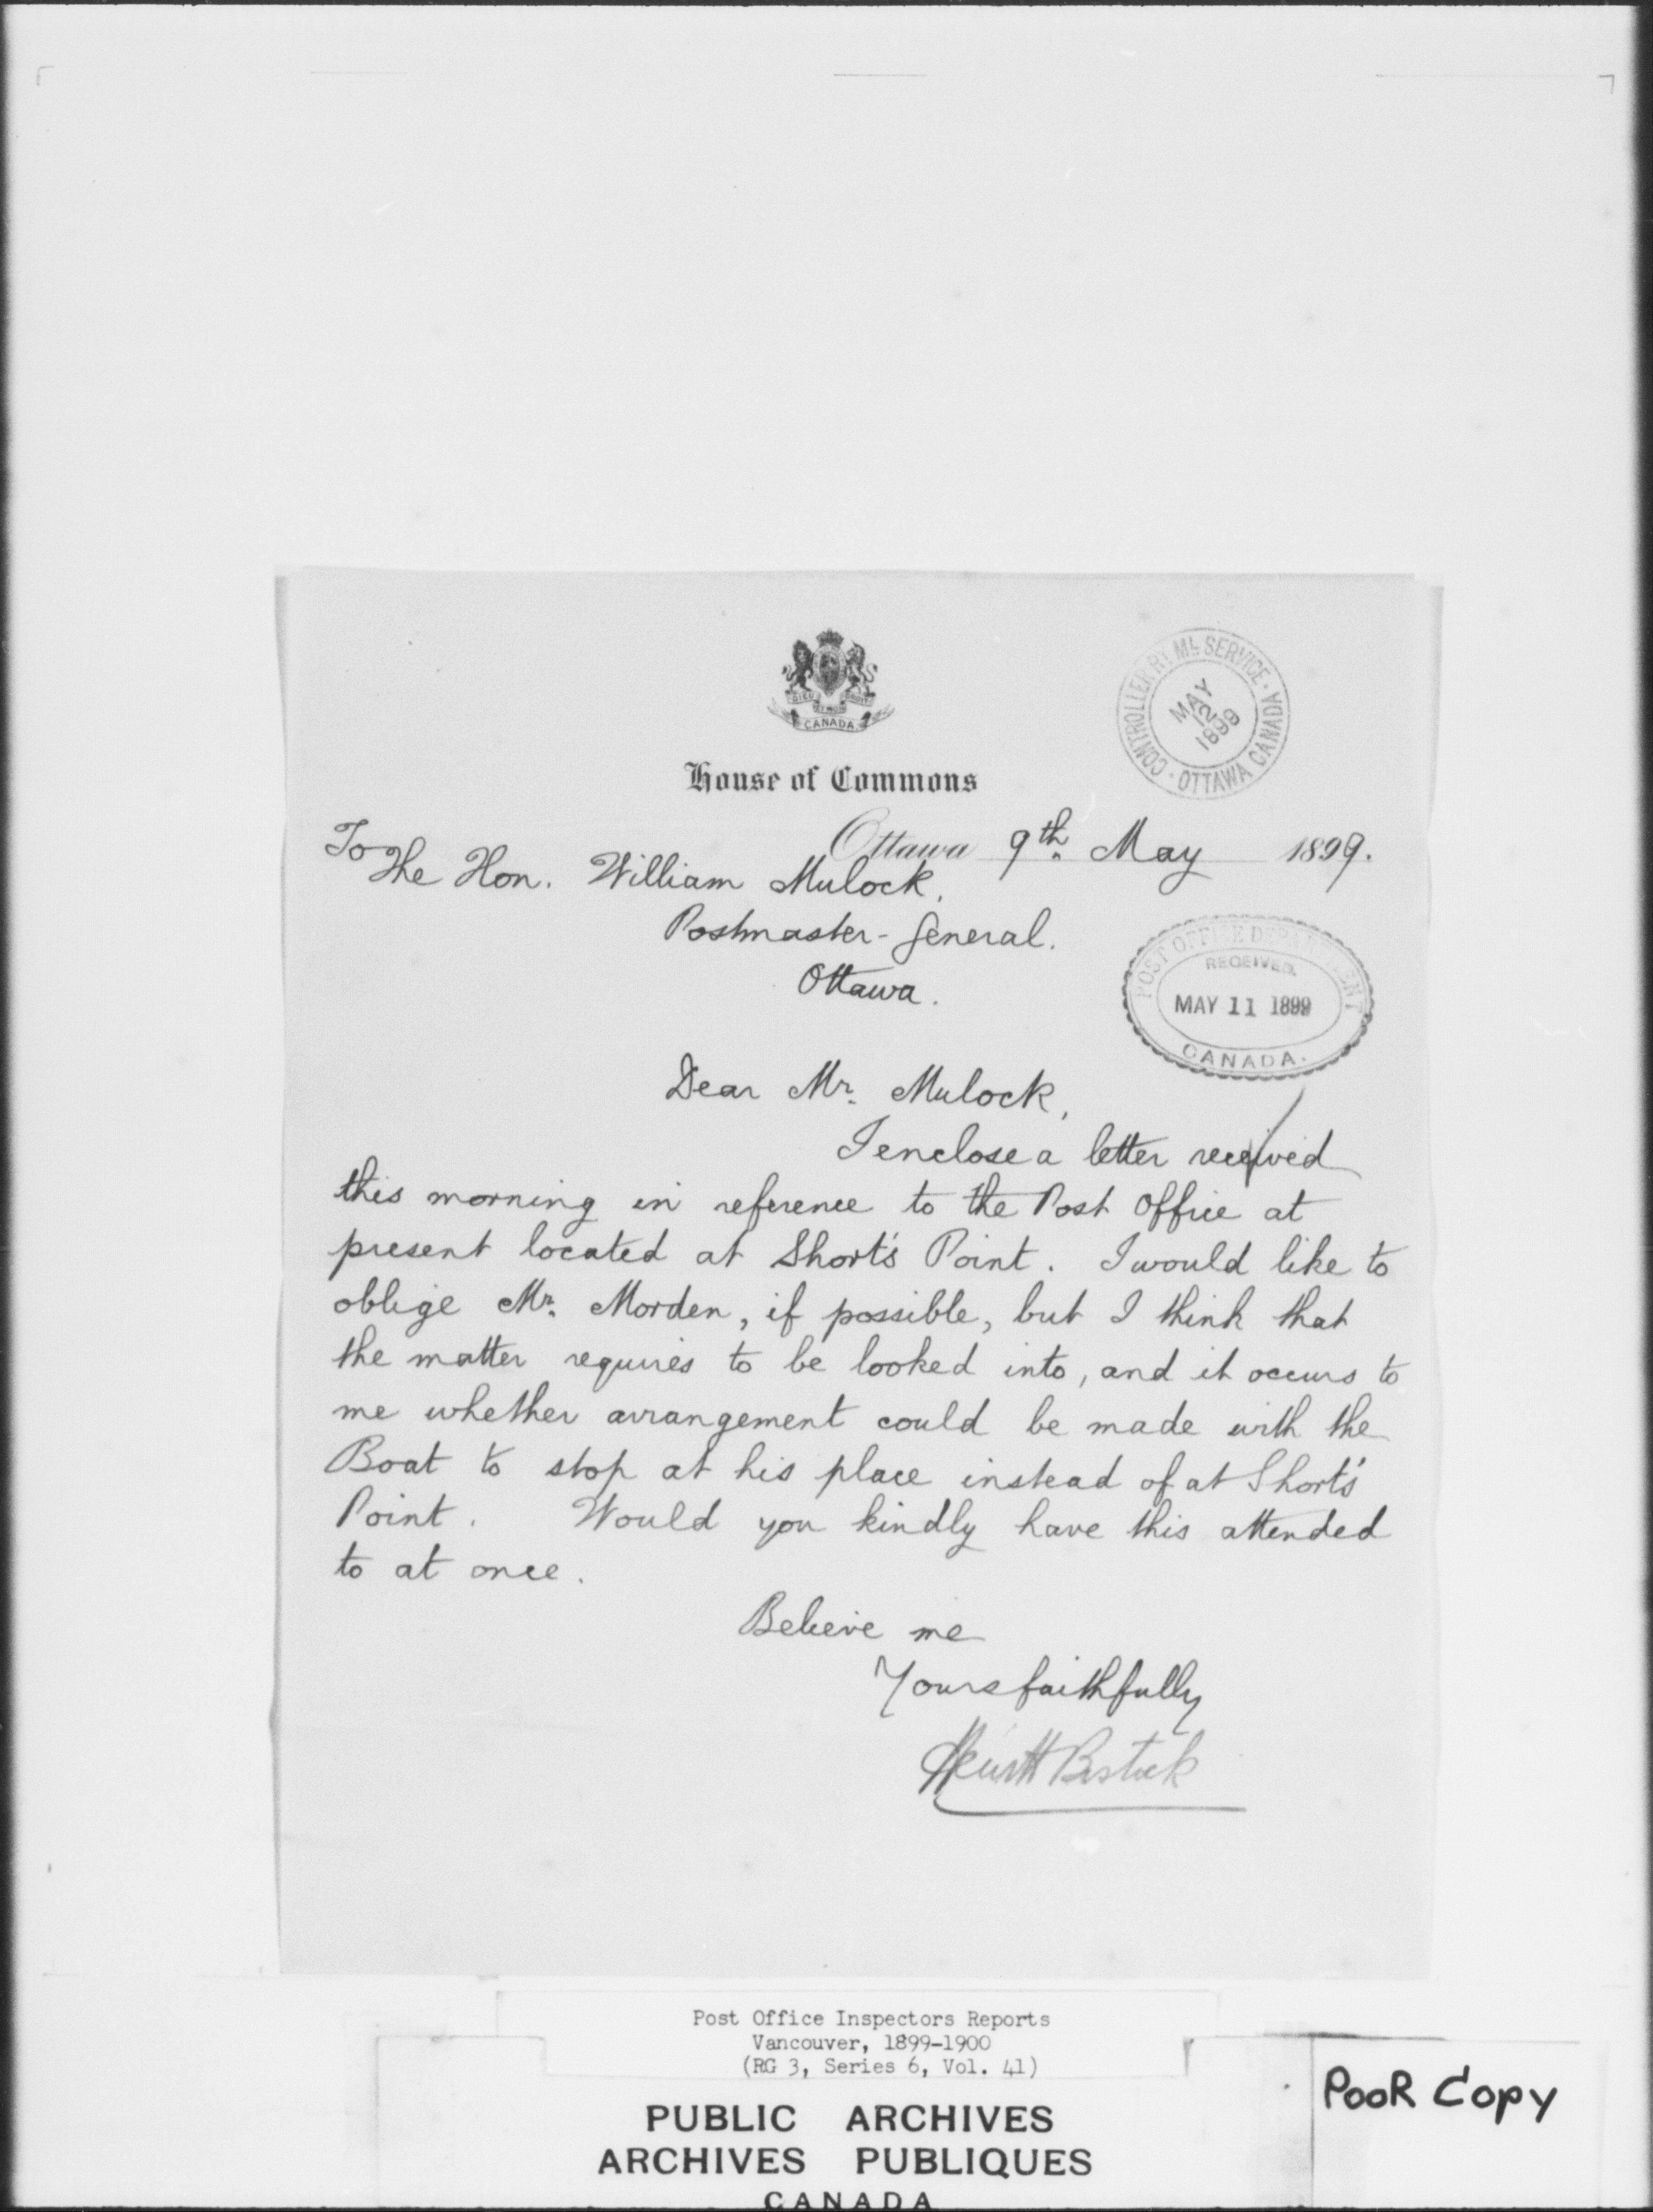 DIEU ET MON DROIT
CANADA
CONTROLLER RY ML SERVICE
MAY
12
1899
OTTAWA CANADA
House of Commons
Ottawa 9th May 1899.
To The Hon. William Mulock,
Postmaster-General.
Ottawa.
POST OFFICE DEPARTMENT
RECEIVED.
MAY 11 1899
CANADA.
Dear Mr. Mulock,
I enclose a letter received
this morning in reference to the Post Office at
present located at Short's Point. I would like to
oblige Mr. Morden, if possible, but I think that
the matter requires to be looked into, and it occurs to
me whether arrangement could be made with the
Boat to stop at his place instead of at Short's
Point. Would you kindly have this attended
to at once.
Believe me
Yours faithfully
Hewitt Bostock
Post Office Inspectors Reports
Vancouver, 1899-1900
(RG 3, Series 6, Vol. 41)
PUBLIC ARCHIVES
ARCHIVES PUBLIQUES
CANADA
POOR COPY